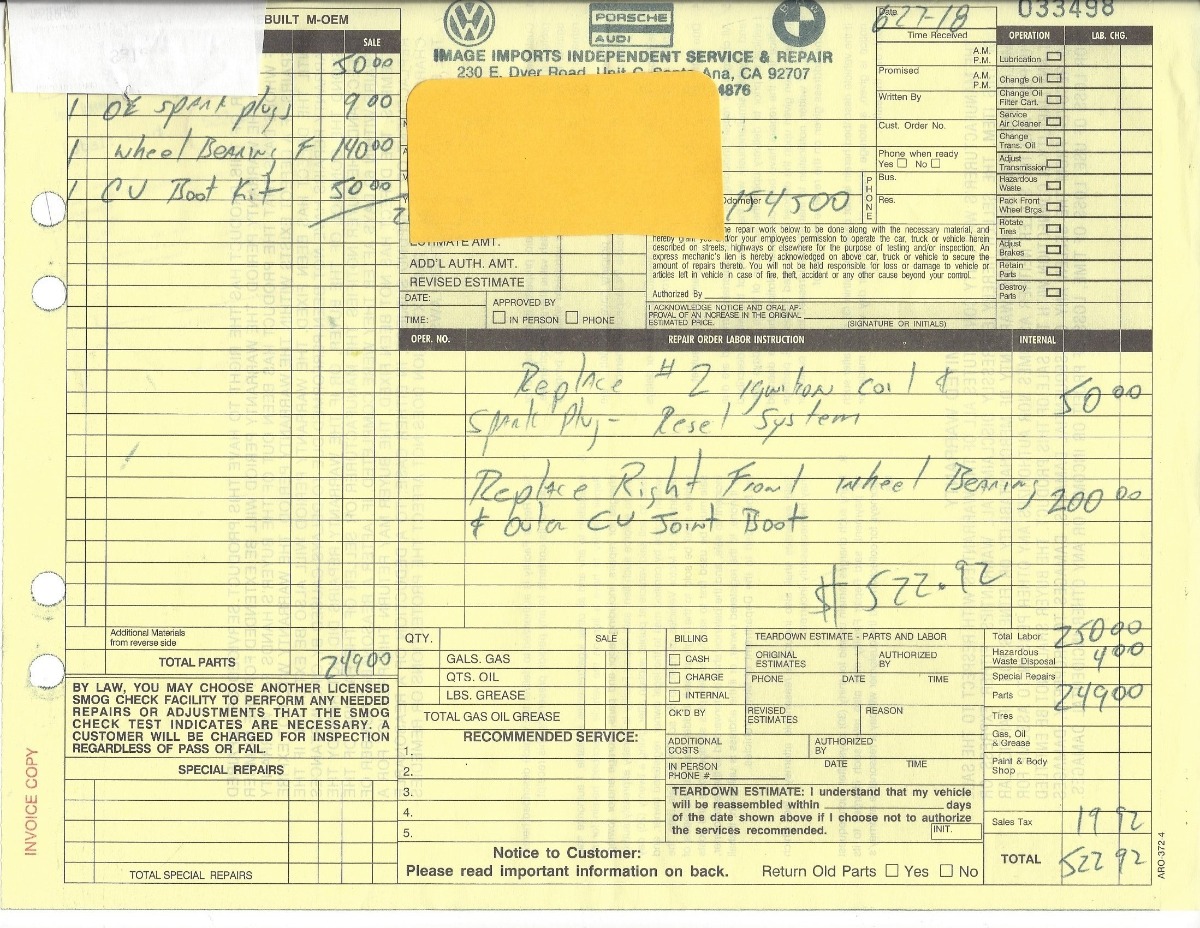 BUILT M-OEM
SALE
50 00
1 OE spark plugs 9 00
1 wheel Bearing F 140 00
1 CV Boot Kit 50 00
Additional Materials
from reverse side
TOTAL PARTS 249 00
BY LAW, YOU MAY CHOOSE ANOTHER LICENSED
SMOG CHECK FACILITY TO PERFORM ANY NEEDED
REPAIRS OR ADJUSTMENTS THAT THE SMOG
CHECK TEST INDICATES ARE NECESSARY. A
CUSTOMER WILL BE CHARGED FOR INSPECTION
REGARDLESS OF PASS OR FAIL.
SPECIAL REPAIRS
TOTAL SPECIAL REPAIRS
INVOICE COPY
PORSCHE
AUDI
IMAGE IMPORTS INDEPENDENT SERVICE & REPAIR
230 E. Dyer Road, Unit C, Santa Ana, CA 92707
4876
Date
6-27-18
033498
Time Received
A.M.
P.M.
Promised
A.M.
P.M.
Written By
Cust. Order No.
Phone when ready
Yes No
PHONE
Bus.
Res.
Odometer 154500
OPERATION LAB. CHG.
Lubrication
Change Oil
Change Oil
Filter Cart.
Service
Air Cleaner
Change
Trans. Oil
Adjust
Transmission
Hazardous
Waste
Pack Front
Wheel Brgs.
Rotate
Tires
Adjust
Brakes
Retain
Parts
Destroy
Parts
ESTIMATE AMT.
ADD'L AUTH. AMT.
REVISED ESTIMATE
DATE:
TIME:
APPROVED BY
IN PERSON PHONE
the repair work below to be done along with the necessary material, and
hereby grant you and/or your employees permission to operate the car, truck or vehicle herein
described on streets, highways or elsewhere for the purpose of testing and/or inspection. An
express mechanic's lien is hereby acknowledged on above car, truck or vehicle to secure the
amount of repairs thereto. You will not be held responsible for loss or damage to vehicle or
articles left in vehicle in case of fire, theft, accident or any other cause beyond your control.
Authorized By
I ACKNOWLEDGE NOTICE AND ORAL AP-
PROVAL OF AN INCREASE IN THE ORIGINAL
ESTIMATED PRICE.
(SIGNATURE OR INITIALS)
OPER. NO. REPAIR ORDER LABOR INSTRUCTION INTERNAL
Replace #2 ignition coil & 50 00
Spark Plug - Reset System
Replace Right Front wheel Bearing 200 00
& outer CV Joint Boot
$ 522.92
QTY. SALE
GALS. GAS
QTS. OIL
LBS. GREASE
TOTAL GAS OIL GREASE
RECOMMENDED SERVICE:
1.
2.
3.
4.
5.
BILLING
CASH
CHARGE
INTERNAL
OK'D BY
TEARDOWN ESTIMATE - PARTS AND LABOR
ORIGINAL
ESTIMATES
AUTHORIZED
BY
PHONE DATE TIME
REVISED
ESTIMATES
REASON
ADDITIONAL
COSTS
AUTHORIZED
BY
IN PERSON
PHONE #
DATE TIME
TEARDOWN ESTIMATE: I understand that my vehicle
will be reassembled within days
of the date shown above if I choose not to authorize
the services recommended.
INIT.
Notice to Customer:
Please read important information on back.
Return Old Parts Yes No
Total Labor 250 00
Hazardous
Waste Disposal 4 00
Special Repairs
Parts 249 00
Tires
Gas, Oil
& Grease
Paint & Body
Shop
Sales Tax 19 92
TOTAL 522 92
ARO-372 4